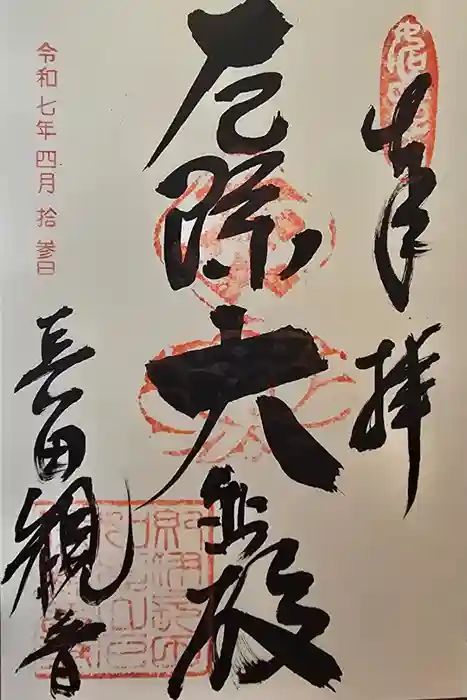 奉拝
厄除大悲殿
長田観音
令和七年四月拾参日